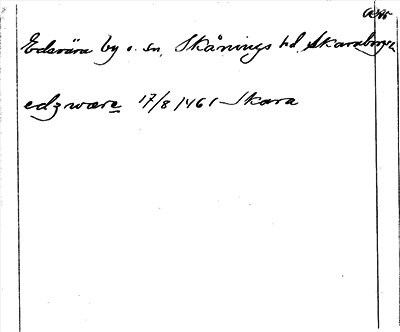 Edsvära by o. sn, Skånings hd, Skaraborgs
edzwære 17/8 1461 Skara